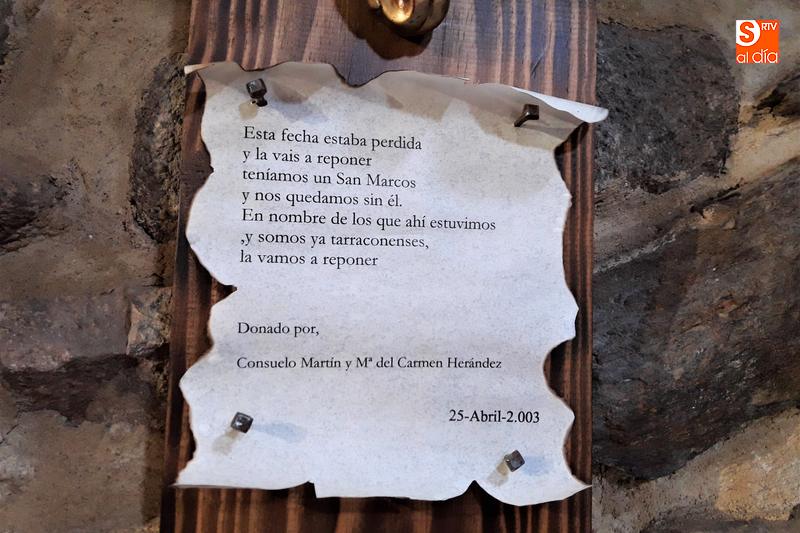 S RTV
al día
Esta fecha estaba perdida
y la vais a reponer
teníamos un San Marcos
y nos quedamos sin él.
En nombre de los que ahí estuvimos
,y somos ya tarraconenses,
la vamos a reponer
Donado por,
Consuelo Martín y Mª del Carmen Herández
25-Abril-2.003